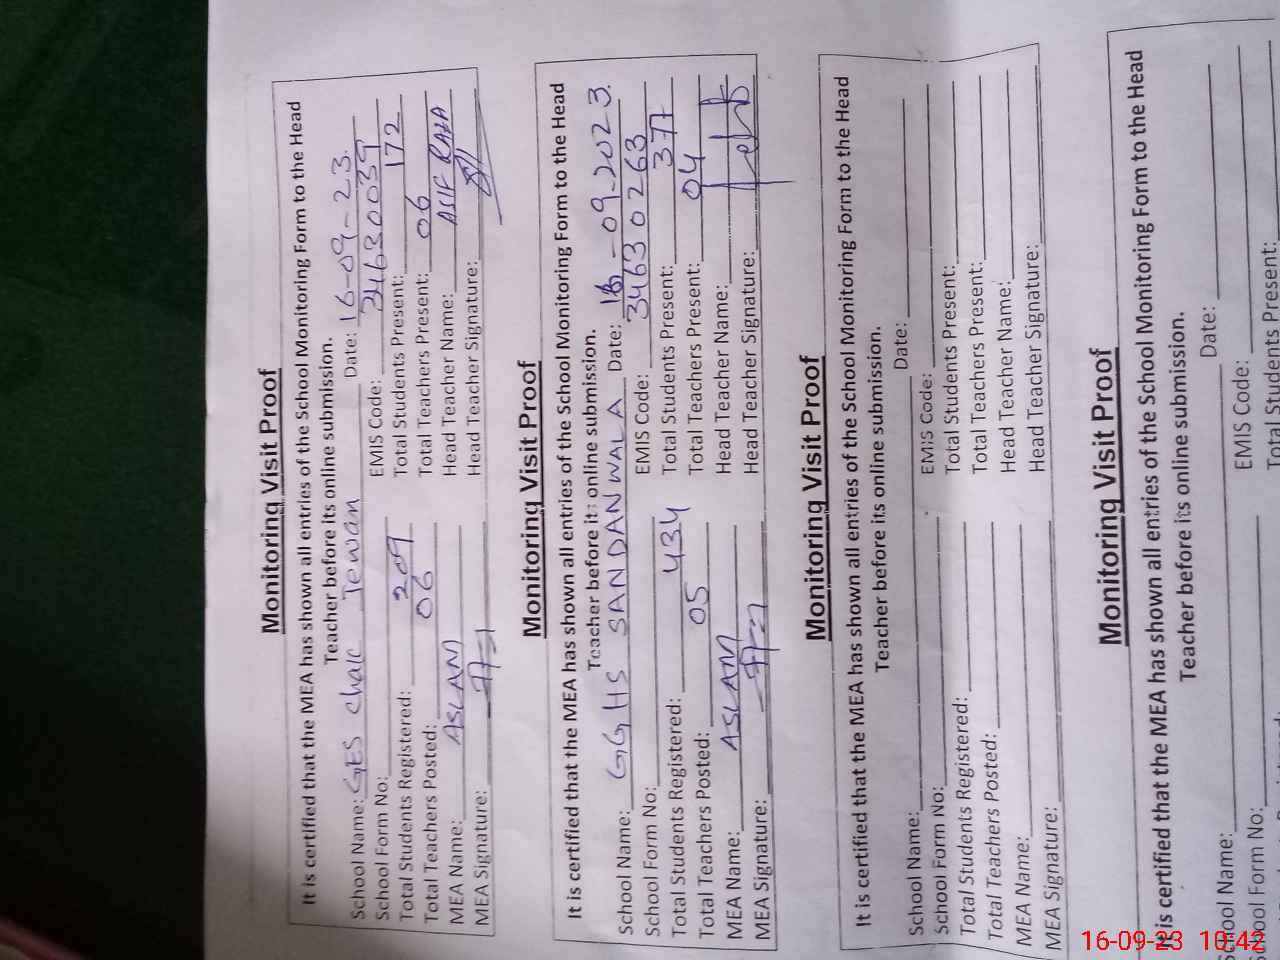 Monitoring Visit Proof
It is certified that the MEA has shown all entries of the School Monitoring Form to the Head
Teacher before its online submission.
School Name: GES Chak Jewan Date: 16-09-23.
School Form No: EMIS Code: 34630039
Total Students Registered: 209 Total Students Present: 172
Total Teachers Posted: 06 Total Teachers Present: 06
MEA Name: ASLAM Head Teacher Name: ASIF RAZA
MEA Signature: Head Teacher Signature:
Monitoring Visit Proof
It is certified that the MEA has shown all entries of the School Monitoring Form to the Head
Teacher before its online submission.
School Name: GGHS SANDANWALA Date: 16-09-2023.
School Form No: EMIS Code: 34630263
Total Students Registered: 434 Total Students Present: 377
Total Teachers Posted: 05 Total Teachers Present: 04
MEA Name: ASLAM Head Teacher Name:
MEA Signature: Head Teacher Signature:
Monitoring Visit Proof
It is certified that the MEA has shown all entries of the School Monitoring Form to the Head
Teacher before its online submission.
School Name: Date:
School Form No: EMIS Code:
Total Students Registered: Total Students Present:
Total Teachers Posted: Total Teachers Present:
MEA Name: Head Teacher Name:
MEA Signature: Head Teacher Signature:
Monitoring Visit Proof
It is certified that the MEA has shown all entries of the School Monitoring Form to the Head
Teacher before its online submission.
School Name: Date:
School Form No: EMIS Code:
Total Students Present:
16-09-23 10:42